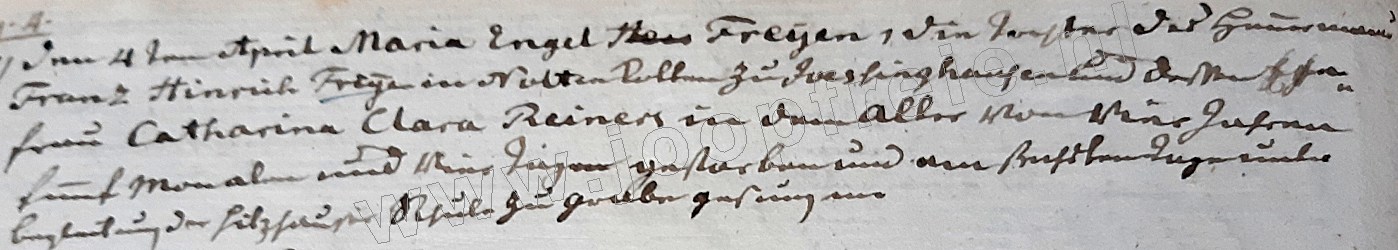 4.
den 4ten April Maria Engel Freÿen, die Tochter des Heuermanns
Franz Hinrich Freÿe in Nolten Kotten zu und dessen Ehe
frau Catharina Clara Reiners in dem Alter von vier Jahren
fünf Monaten und vier Tagen gestorben und am sechsten Tage unter
begleitung der Hilzhauser Schule zu grabe gesungen
www.jooptreie.nl